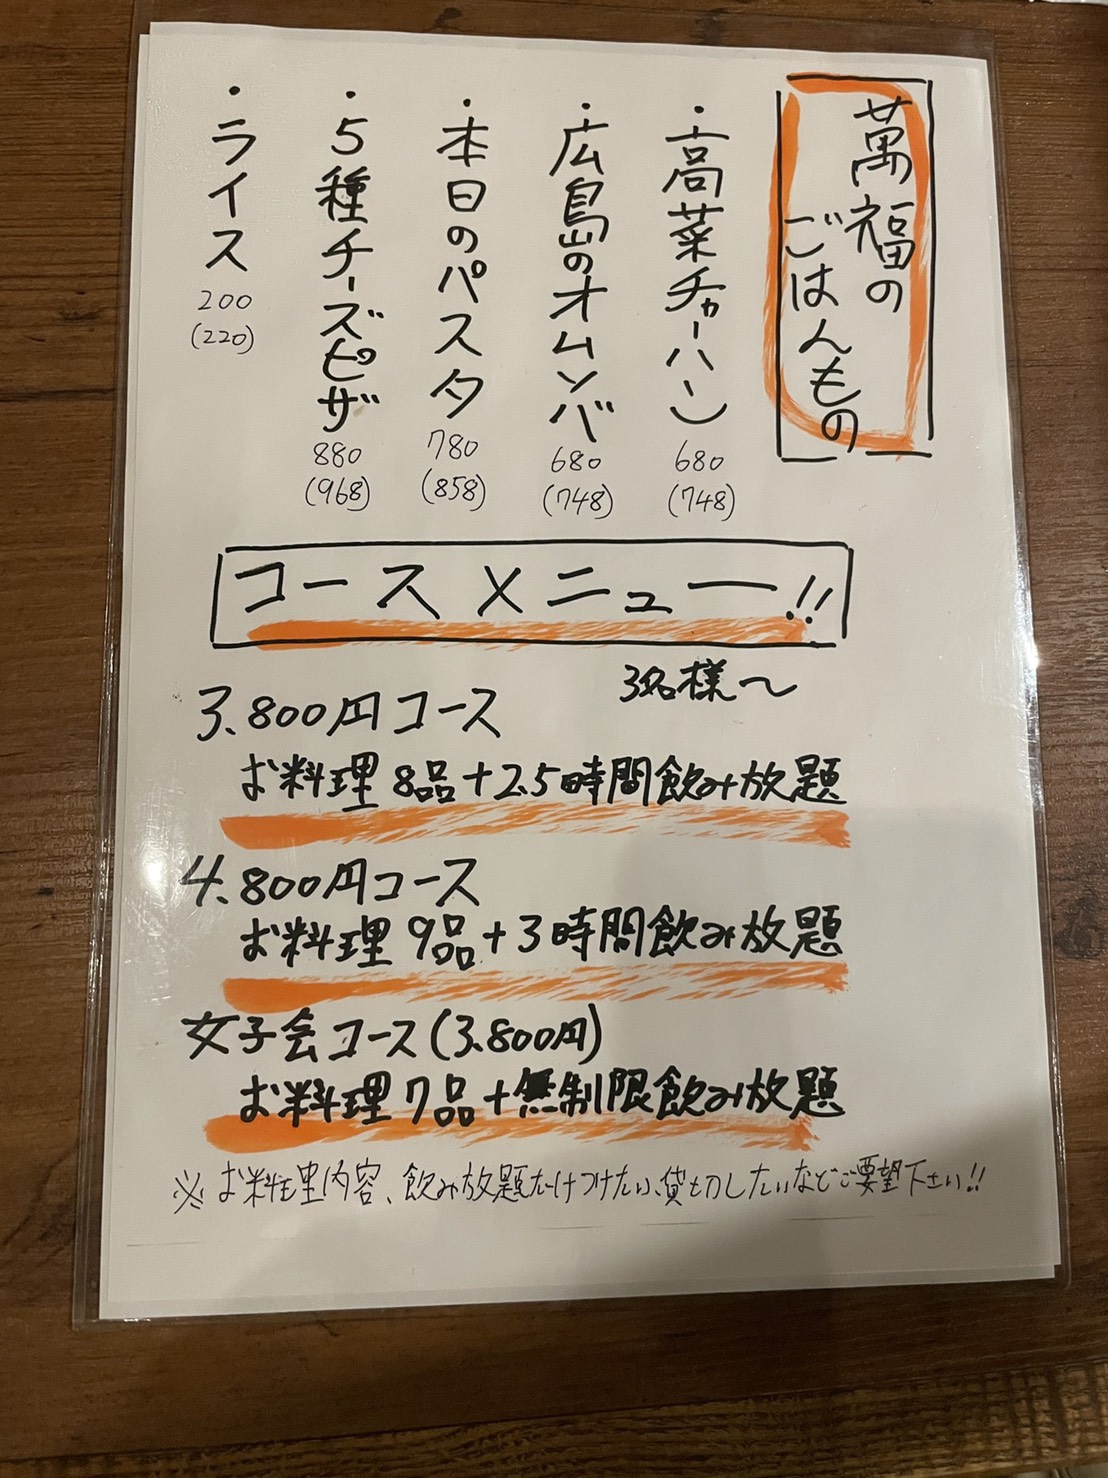 萬福の
ごはんもの
・高菜チャーハン
680
(748)
・広島のオムソバ
680
(748)
・本日のパスタ
780
(858)
・5種チーズピザ
880
(968)
・ライス
200
(220)
コースメニュー!!
3名様〜
3,800円コース
お料理8品+2.5時間飲み放題
4,800円コース
お料理9品+3時間飲み放題
女子会コース(3,800円)
お料理7品+無制限飲み放題
※お料理内容、飲み放題だけつけたい、貸し切りしたいなどご要望下さい!!